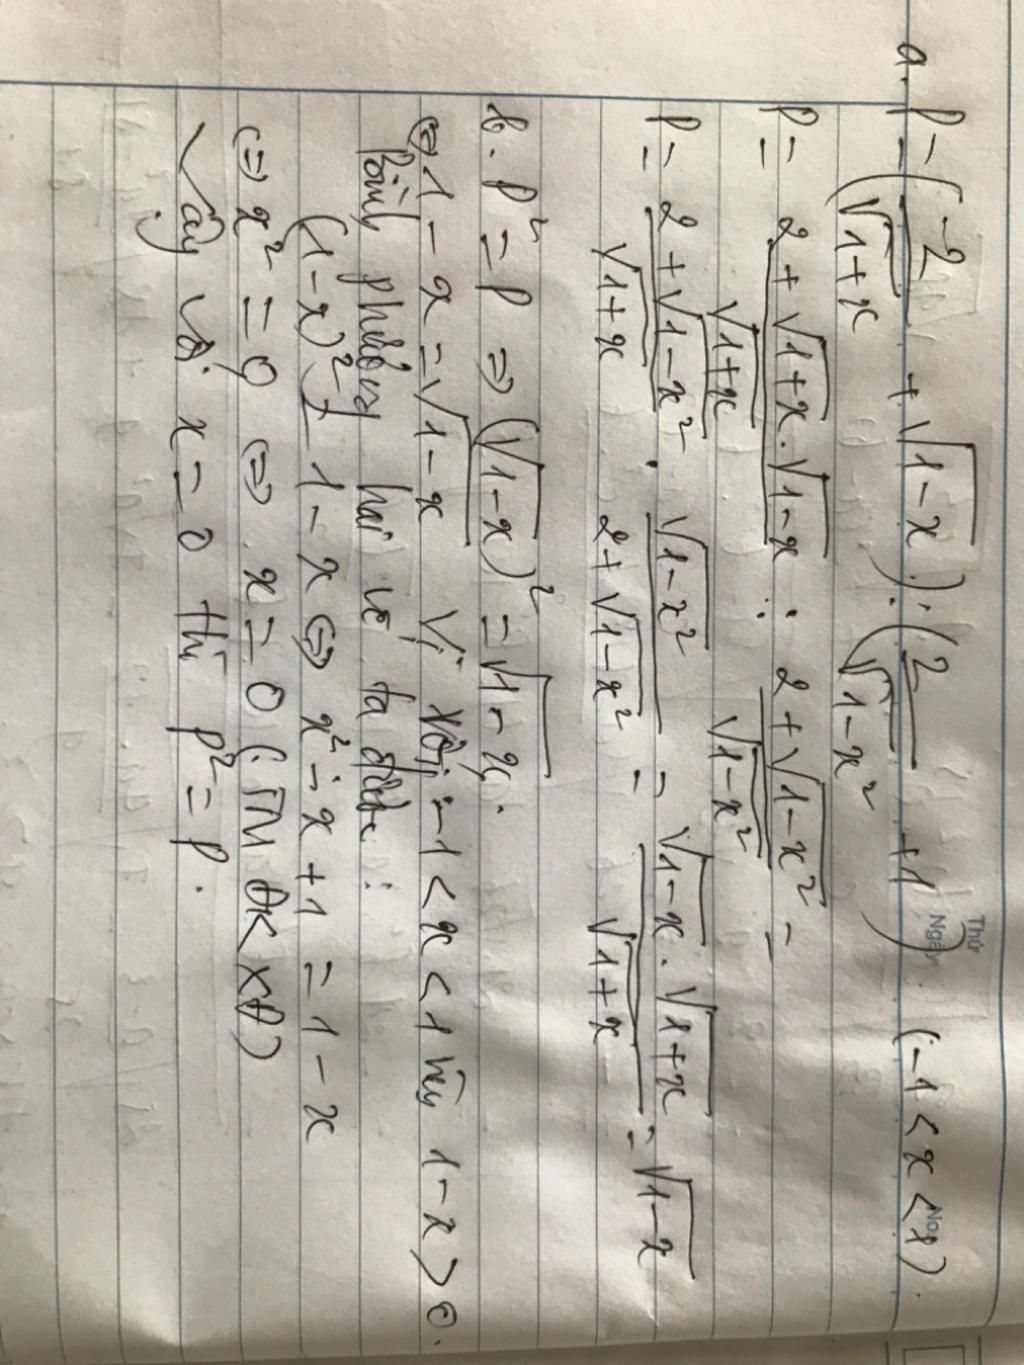 Thứ
Ngày No.
a. P = (2/√1+x + √1-x) : (2/√1-x² + 1) (-1 < x < 1).
P = 2 + √1+x . √1-x / √1+x : 2 + √1-x² / √1-x² =
P = 2 + √1-x² / √1+x . √1-x² / 2 + √1-x² = √1-x . √1+x / √1+x = √1-x
b. P² = P ⇒ (√1-x)² = √1-x.
⇔ 1 - x = √1-x Vì Với -1 < x < 1 nên 1 - x > 0.
Bình phương hai vế ta được:
(1-x)² = 1 - x ⇔ x² - x + 1 = 1 - x
⇔ x² = 0 ⇔ x = 0 (TM ĐK XĐ)
Vậy với x = 0 thì P² = P.